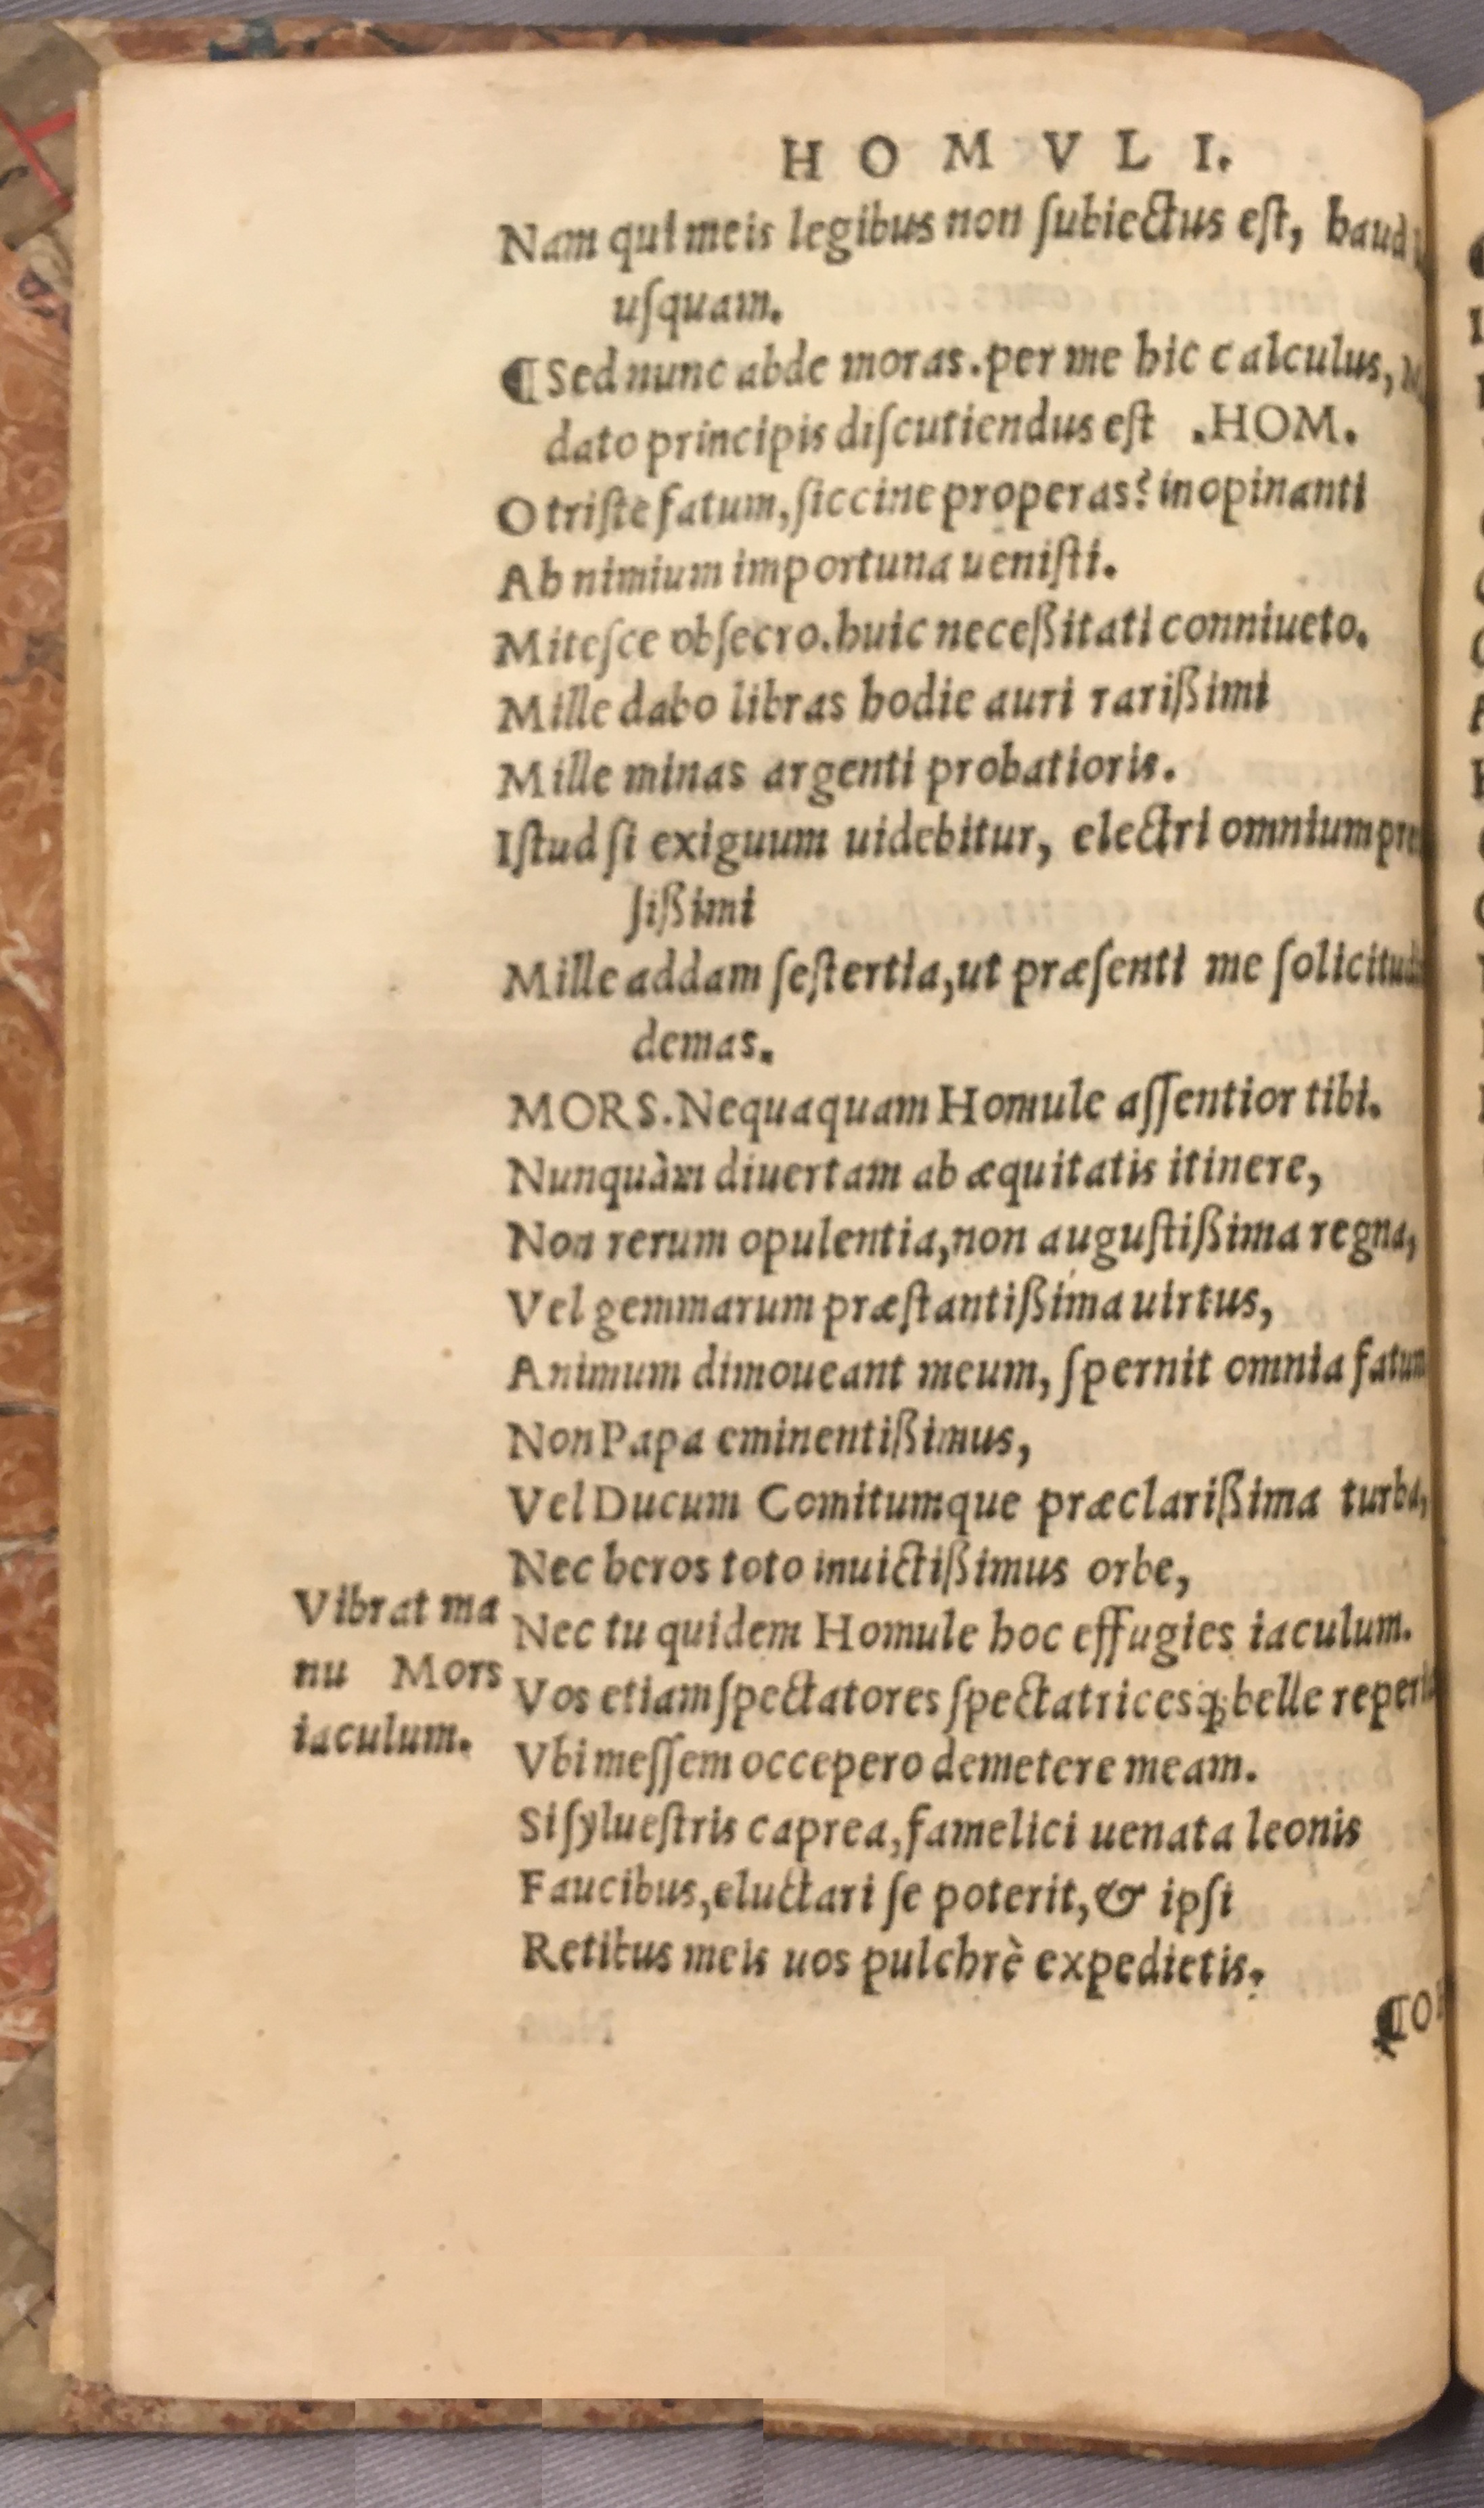 HOMVLI.
Nam qui meis legibus non ſubiectus eſt, haud
uſquam.
¶ Sed nunc abde moras. per me hic calculus,
dato principis diſcutiendus eſt .HOM.
O triſte fatum, ſiccine properas? inopinanti
Ah nimium importuna ueniſti.
Miteſce obſecro. huic neceßitati conniueto.
Mille dabo libras hodie auri rarißimi
Mille minas argenti probatioris.
Iſtud ſi exiguum uidebitur, electri omnium
ſißimi
Mille addam ſeſtertia, ut præſenti me
demas.
MORS. Nequaquam Homule aſſentior tibi.
Nunquàm diuertam ab æquitatis itinere,
Non rerum opulentia, non auguſtißima regna,
Vel gemmarum præſtantißima uirtus,
Animum dimoueant meum, ſpernit omnia fatum
Non Papa eminentißimus,
Vel Ducum Comitumque præclarißima turba,
Nec heros toto inuictißimus orbe,
Vibrat ma
nu Mors
iaculum.
Nec tu quidem Homule hoc effugies iaculum.
Vos etiam ſpectatores ſpectatricesꝗ; belle
Vbi meſſem occepero demetere meam.
Si ſylueſtris caprea, famelici uenata leonis
Faucibus, eluctari ſe poterit, & ipſi
Retibus meis uos pulchrè expedietis.